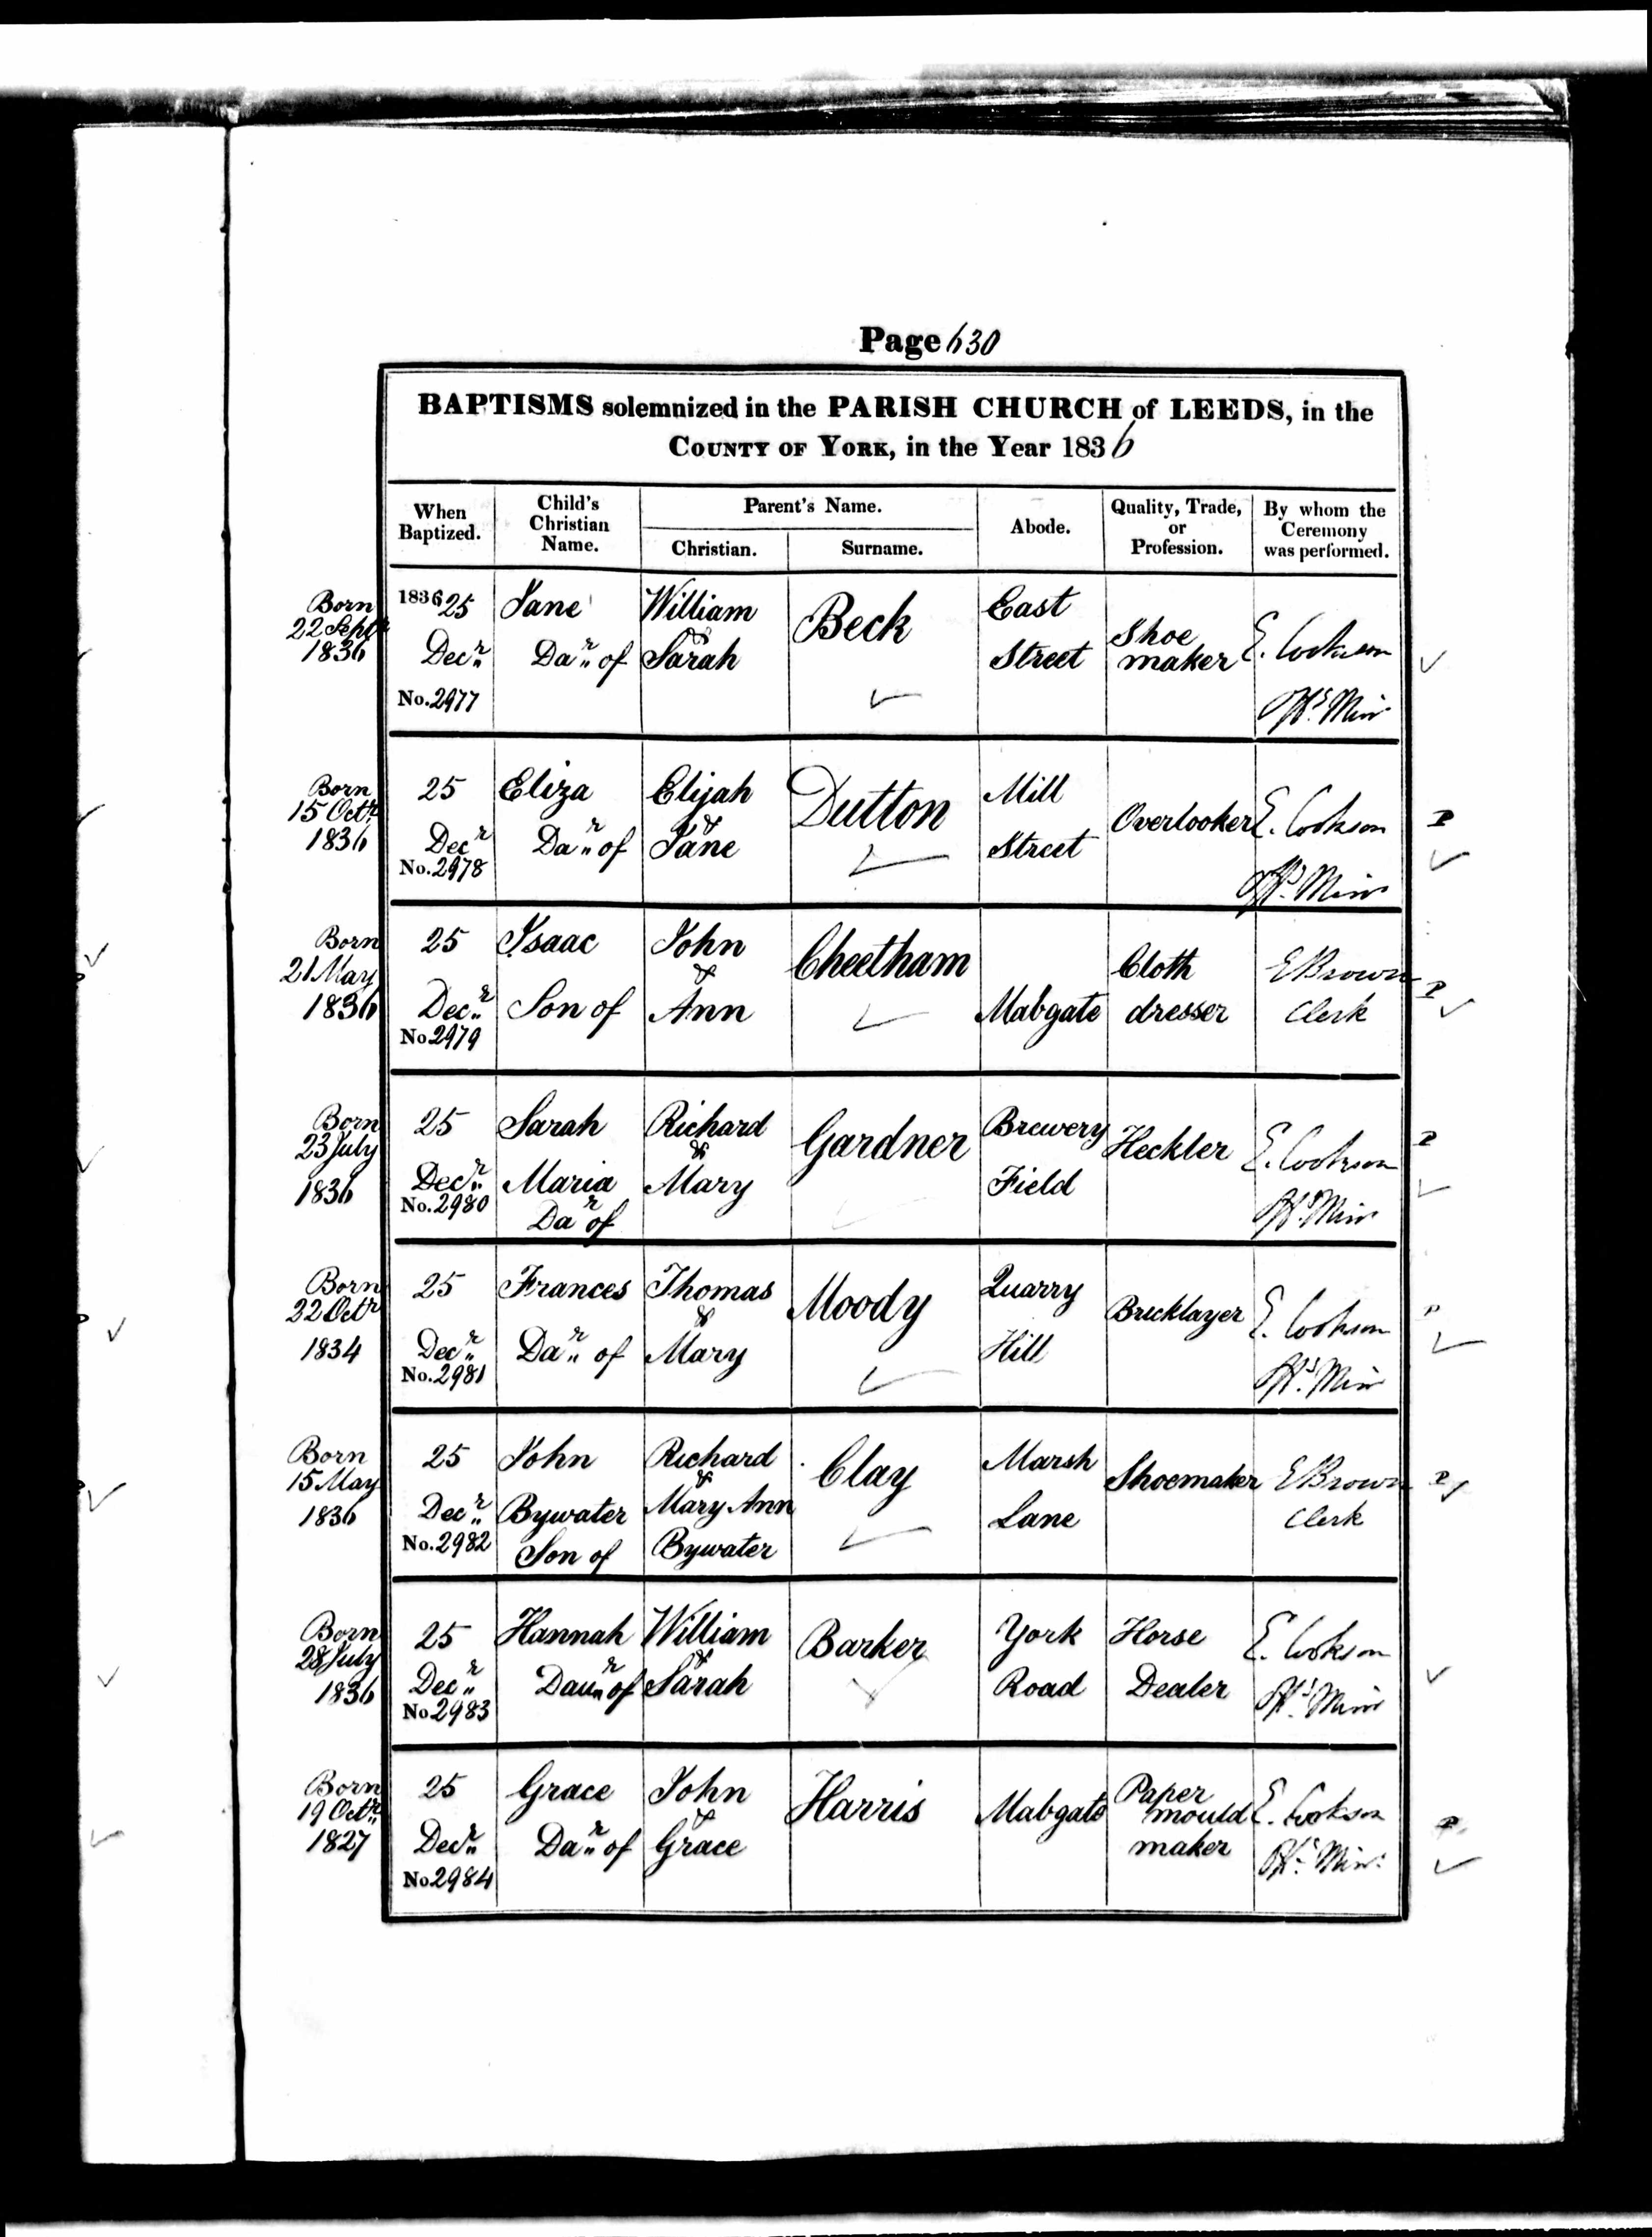 Page 630
BAPTISMS solemnized in the PARISH CHURCH of LEEDS, in the
COUNTY OF YORK, in the Year 1836
When Baptized.
Child's Christian Name.
Parent's Name.
Christian.
Surname.
Abode.
Quality, Trade, or Profession.
By whom the Ceremony was performed.
Born
22 Septr
1836
1836 25
Decr
No. 2977
Jane
Dar of
William
&
Sarah
Beck
East
Street
Shoe
maker
E. Cookson
Born
15 Octr
1836
25
Decr
No. 2978
Eliza
Dar of
Elijah
&
Jane
Dutton
Mill
Street
Overlooker
E. Cookson
Born
21 May
1836
25
Decr
No 2979
Isaac
Son of
John
&
Ann
Cheetham
Mabgate
Cloth
dresser
E Brown
Clerk
Born
23 July
1836
25
Decr
No. 2980
Sarah
Maria
Dar of
Richard
&
Mary
Gardner
Brewery
Field
Heckler
E. Cookson
Born
22 Octr
1834
25
Decr
No. 2981
Frances
Dar of
Thomas
&
Mary
Moody
Quarry
Hill
Bricklayer
E. Cookson
Born
15 May
1836
25
Decr
No. 2982
John
Bywater
Son of
Richard
&
Mary Ann
Bywater
Clay
Marsh
Lane
Shoemaker
E Brown
Clerk
Born
28 July
1836
25
Decr
No 2983
Hannah
Daur of
William
&
Sarah
Barker
York
Road
Horse
Dealer
E. Cookson
Born
19 Octr
1827
25
Decr
No 2984
Grace
Dar of
John
&
Grace
Harris
Mabgate
Paper
mould
maker
E. Cookson